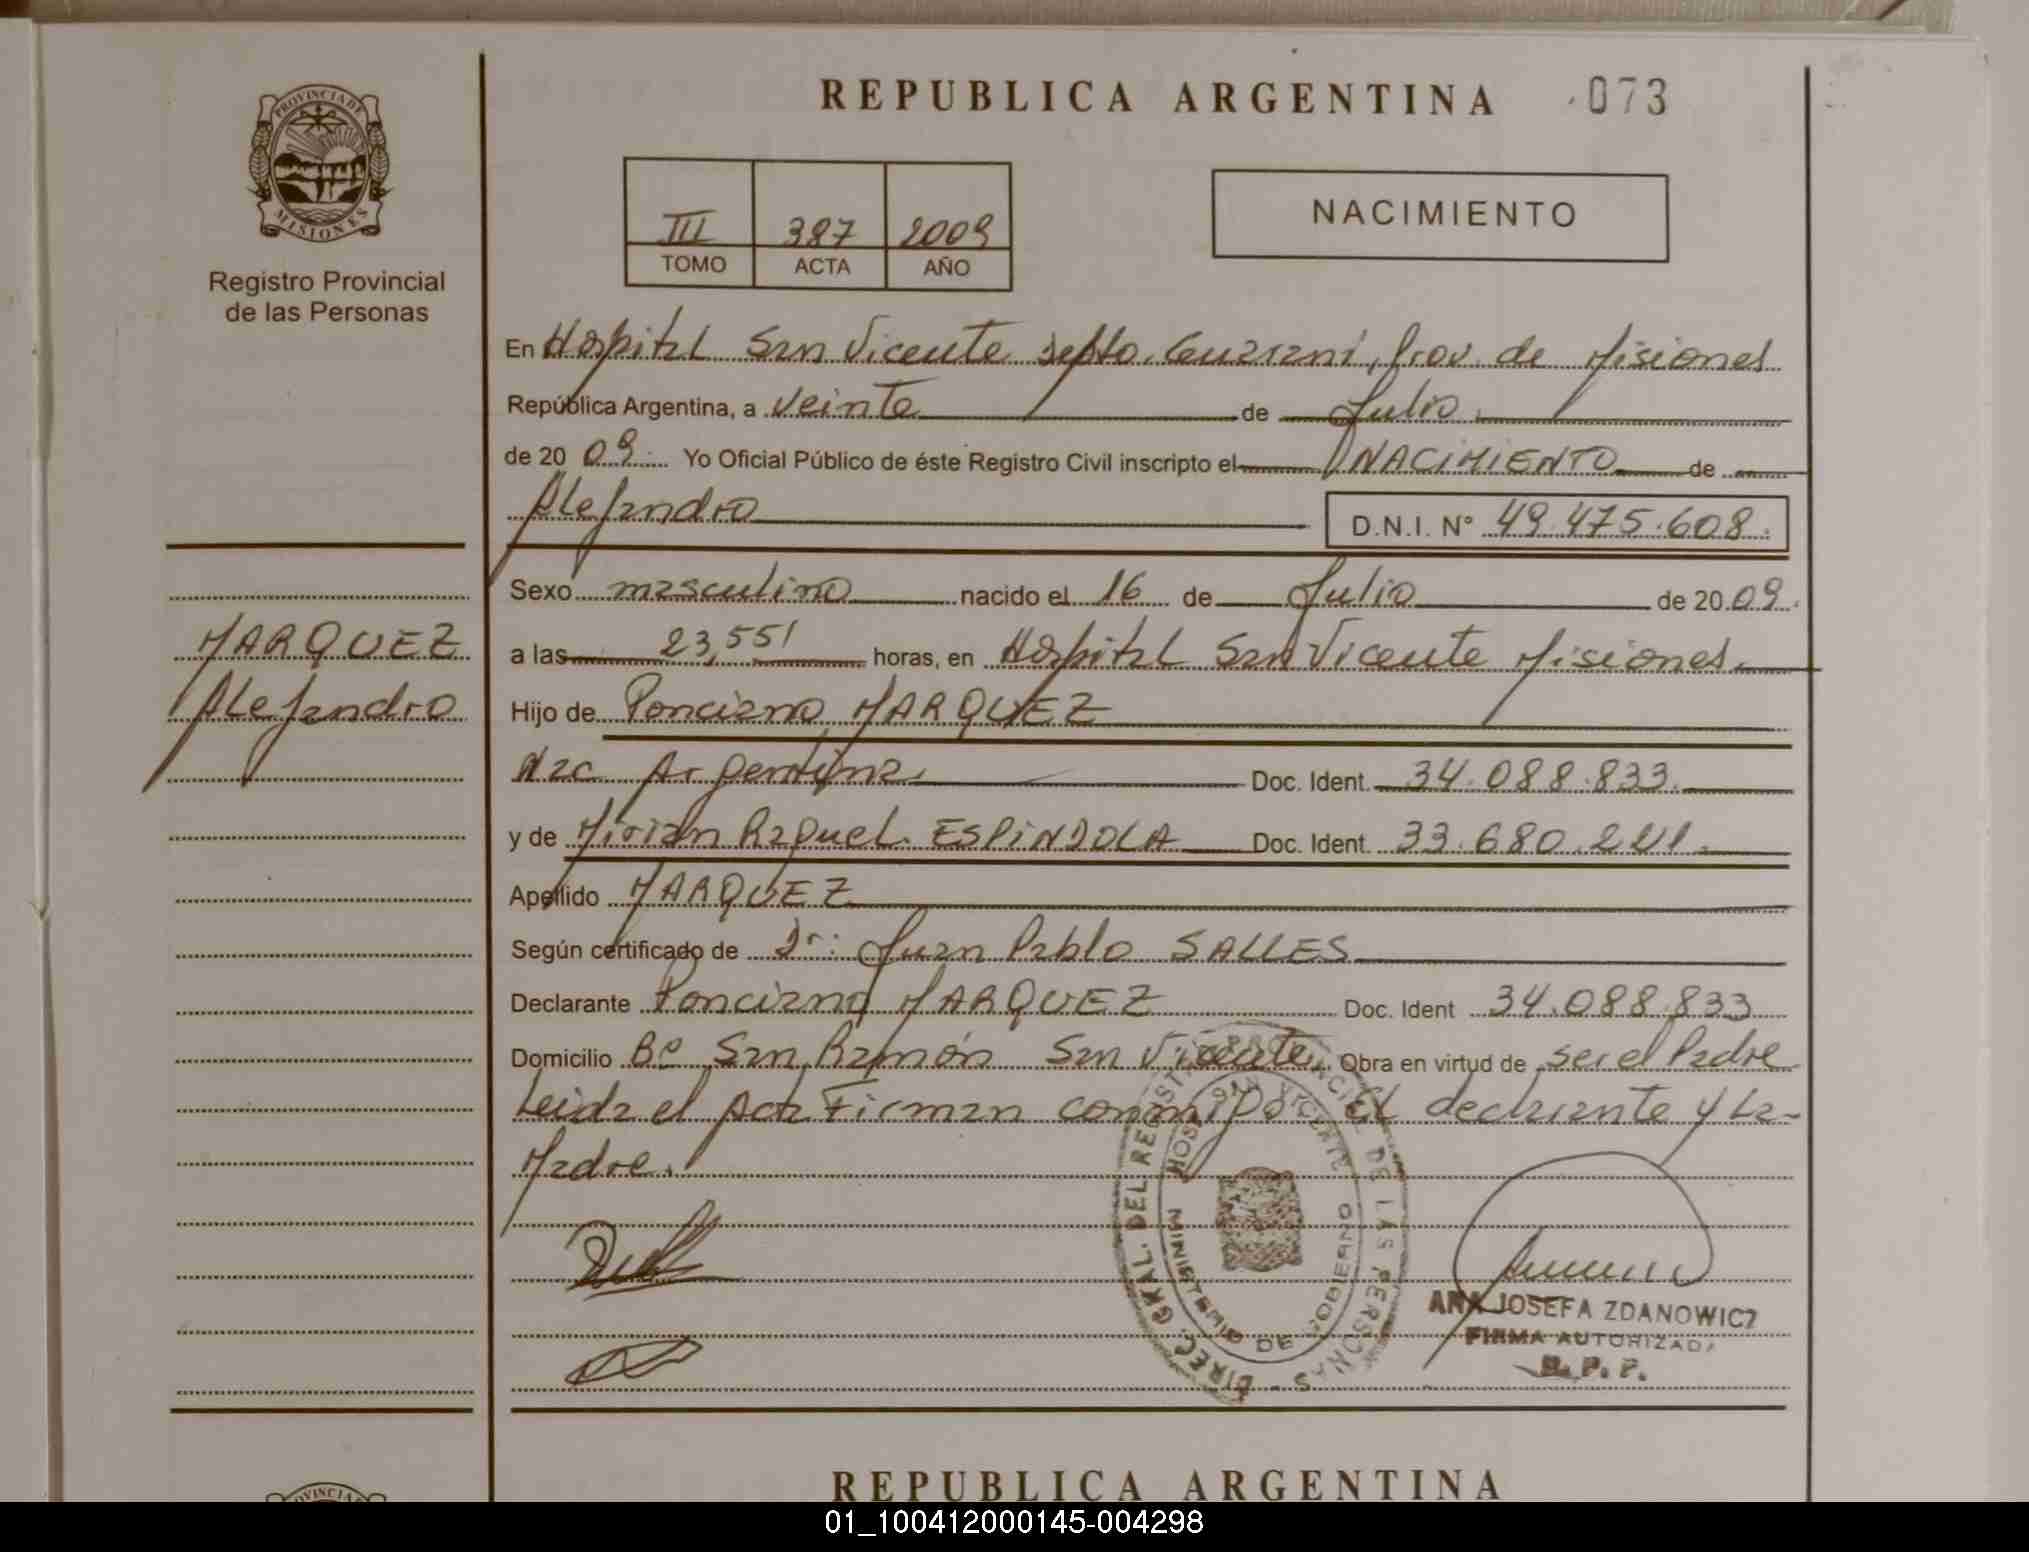 REPUBLICA ARGENTINA 073
PROVINCIA DE
MISIONES
Registro Provincial
de las Personas
III 387 2009
TOMO ACTA AÑO
NACIMIENTO
En Hospital San Vicente Depto. Guaraní, Prov. de Misiones
República Argentina, a veinte de Julio
de 20 09. Yo Oficial Público de éste Registro Civil inscripto el NACIMIENTO de
Alejandro D.N.I. N° 49.475.608.
Sexo masculino nacido el 16 de Julio de 20 09.
MARQUEZ
Alejandro
a las 23,55 horas, en Hospital San Vicente Misiones.
Hijo de Ponciano MARQUEZ
Nac Argentina. Doc. Ident. 34.088.833.
y de Mirian Raquel ESPINDOLA Doc. Ident. 33.680.
Apellido MARQUEZ
Según certificado de Dr: Juan Pablo SALLES
Declarante Ponciano MARQUEZ Doc. Ident 34.088.833
Domicilio Bº San Ramón San Vicente. Obra en virtud de ser el Padre
Leida el Acta Firman conmigo El declarante y La-
Madre.
DIREC. GRAL. DEL REGISTRO PROVINCIAL DE LAS PERSONAS -
HOSP. SAN VICENTE
MINISTERIO DE GOBIERNO
ANA JOSEFA ZDANOWICZ
FIRMA AUTORIZADA
R. P. P.
REPUBLICA ARGENTINA
01_100412000145-004298